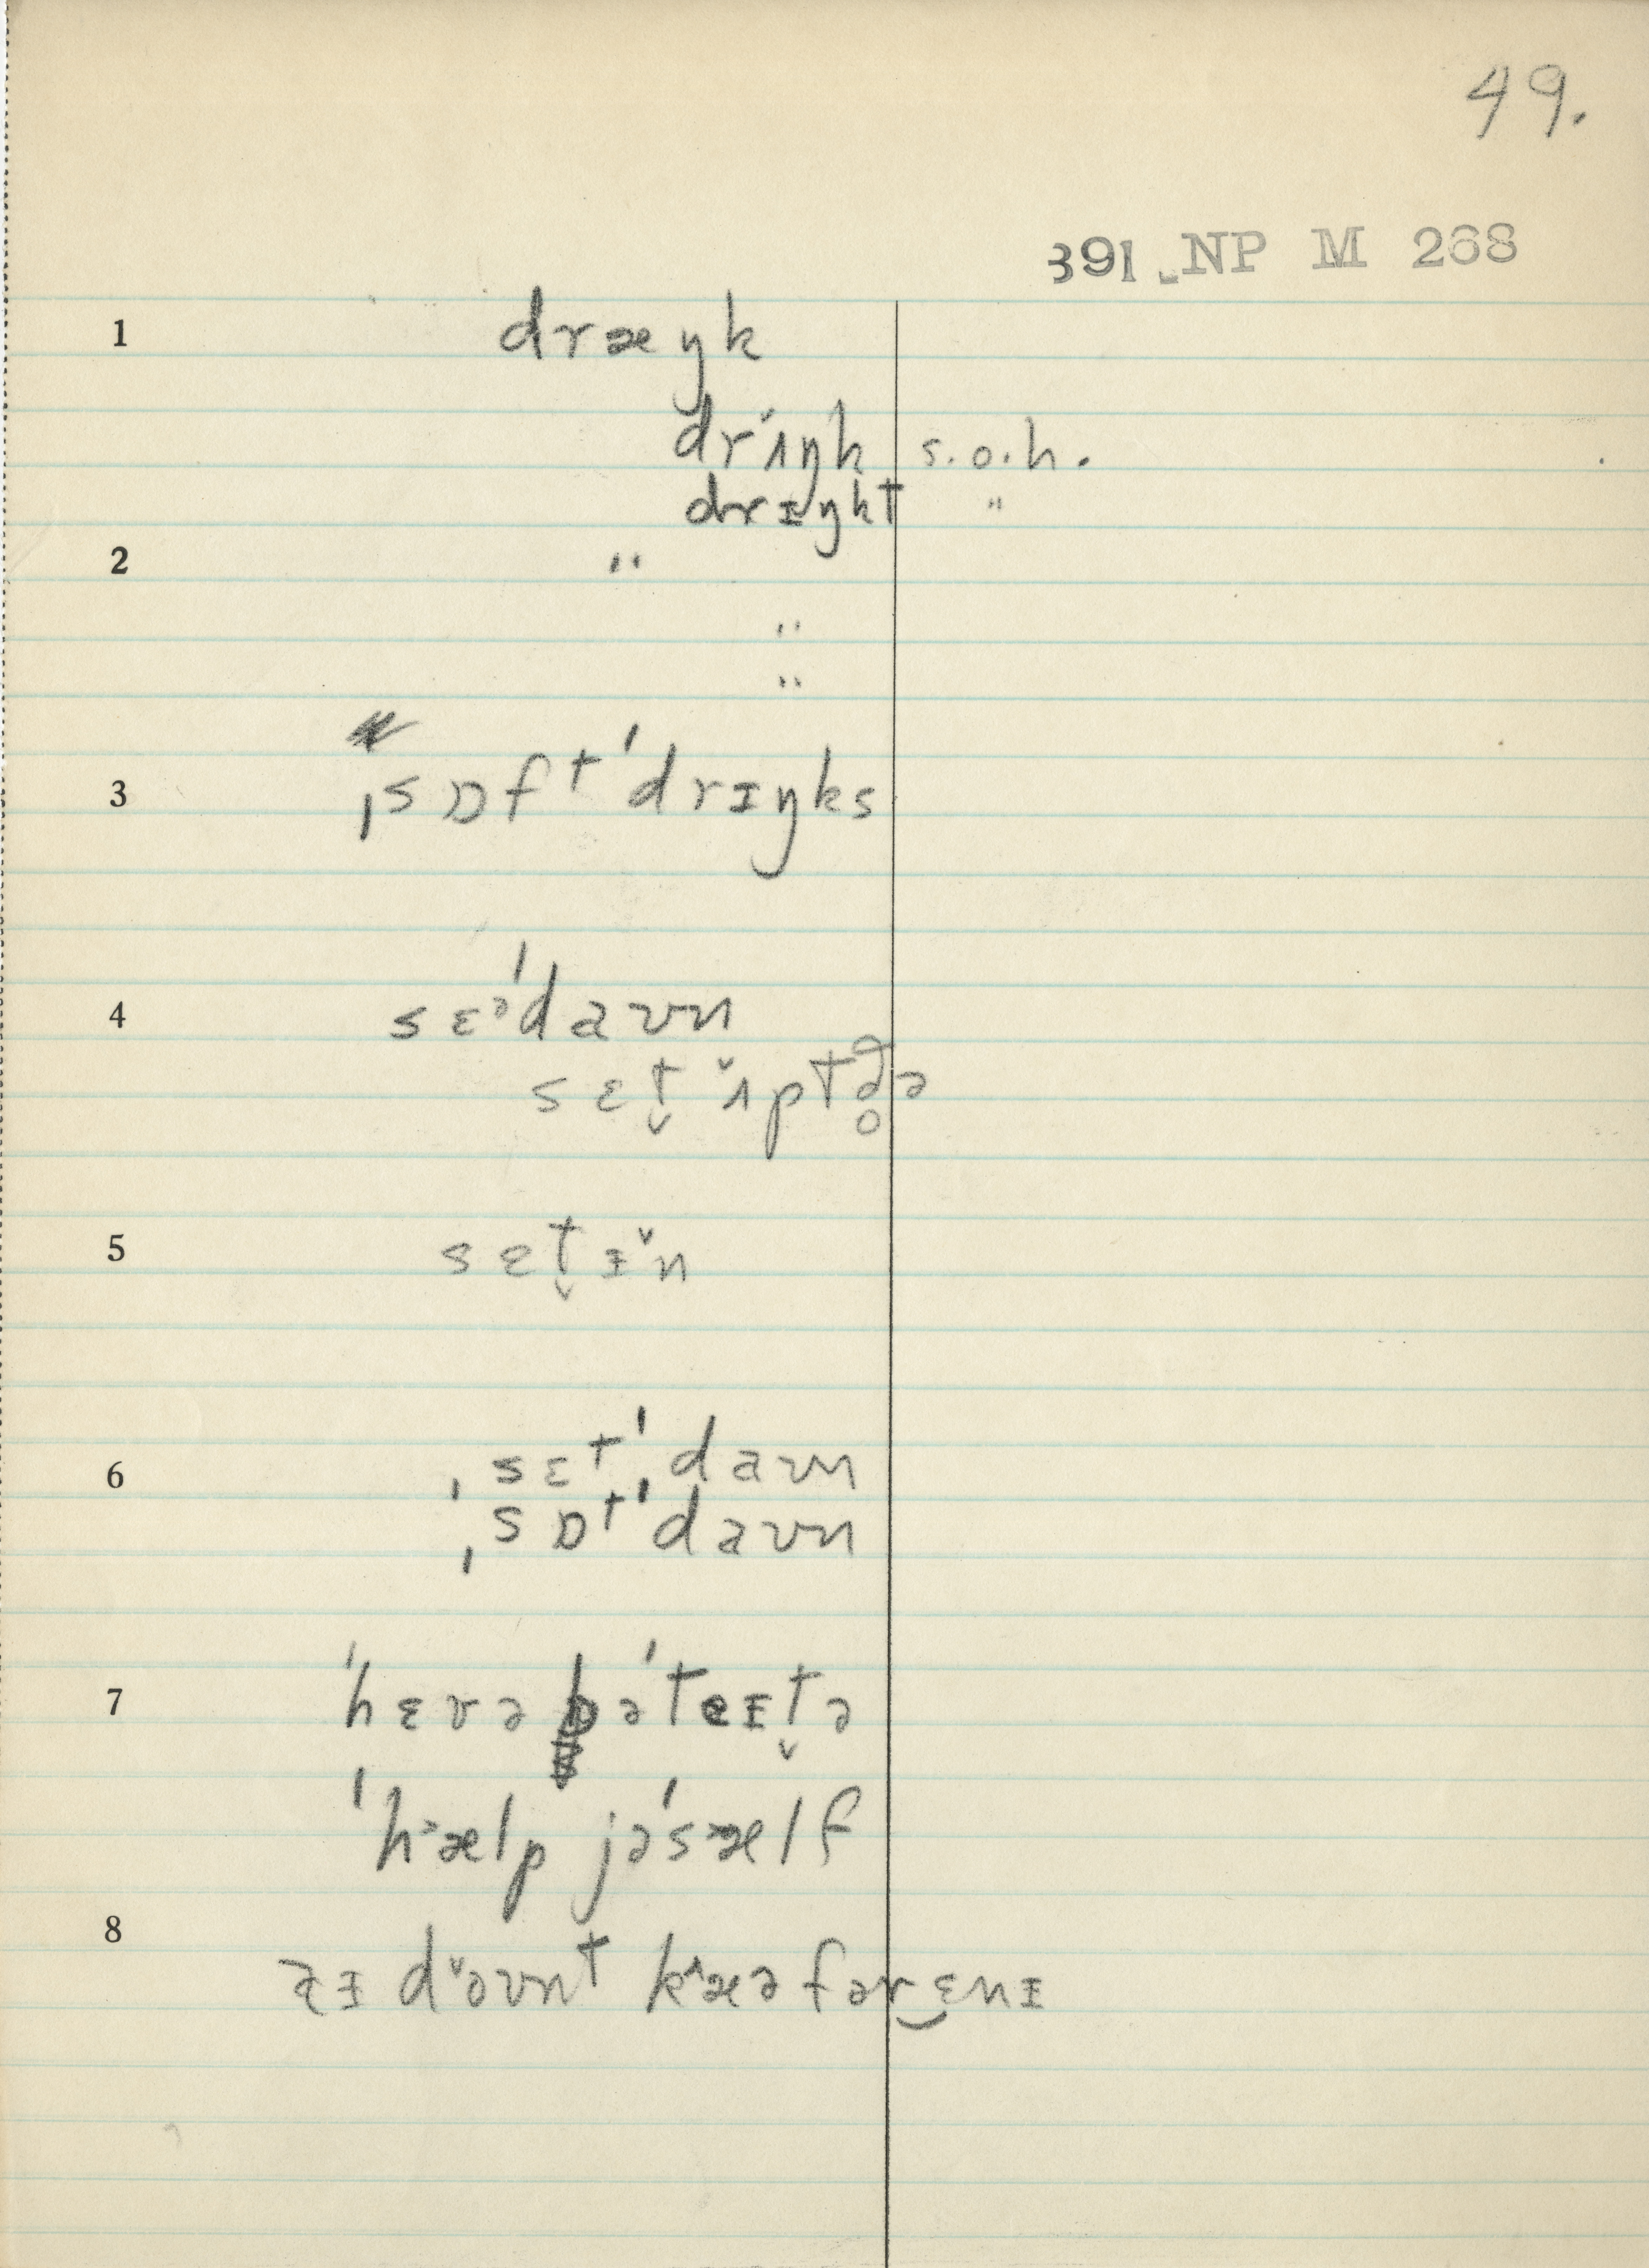 49.
391 NP M 268
1 dræŋk
drʌ˄ŋk s.o.h.
drɪŋkt "
2 "
"
"
3 ˌsɒft ˈdrɪŋks
4 sɛᵊˈdaʊn
sɛt̬ ʌ˅ptðə̥
5 sɛt̬ ɪ˅n
6 ˌsɛtˈdaʊn
ˌsɒtˈdaʊn
7 ˈhɛvə pəˈteɪt̬ə
ˈhæ˃lp jəˈsæ˃lf
8 aɪ də˅ʊnt kæ˄ə fər‿ɛnɪ